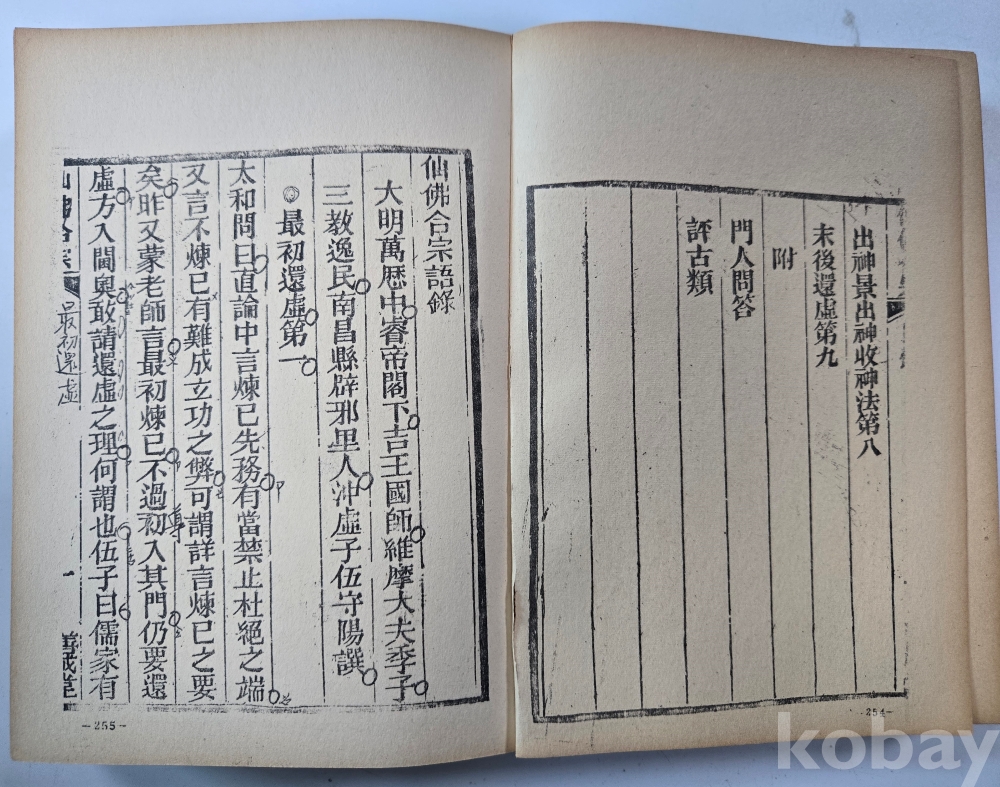 出神景出神收神法第八
末後還虛第九
附
門人問答
評古類
-254-
仙佛合宗語錄
大明萬歷中睿帝閣下吉王國師維摩大夫季子
三教逸民南昌縣辟邪里人冲虛子伍守陽譔
◎最初還虛第一
太和問曰直論中言煉已先務有當禁止杜絕之端
又言不煉已有難成立功之弊可謂詳言煉已之要
矣昨又蒙老師言最初煉已不過初入其門仍要還
虛方入閫奧敢請還虛之理何謂也伍子曰儒家有
仙佛合宗
最初還虛
一
善成堂
-255-
kobay